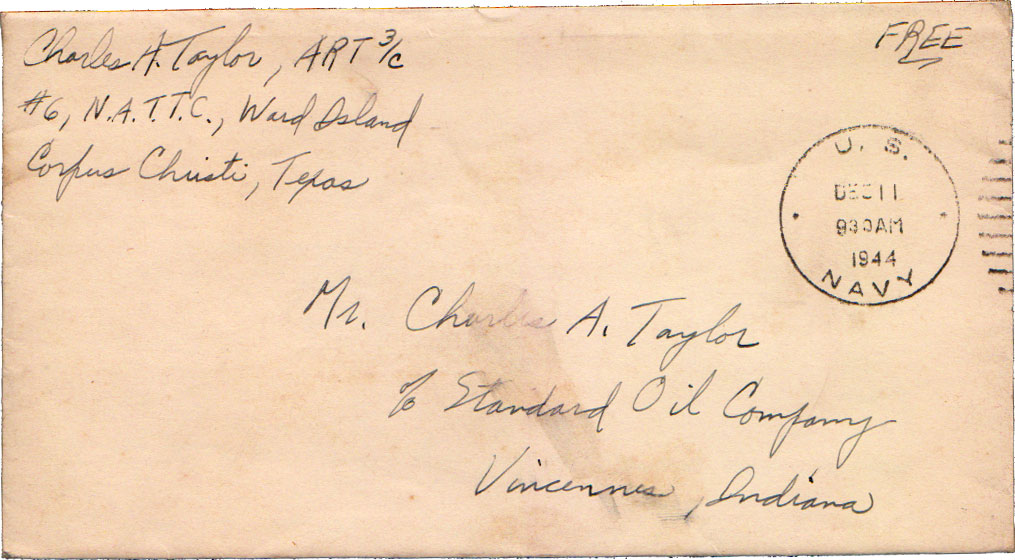 Charles A. Taylor, ART 3/c
#6, N.A.T.T.C., Ward Island
Corpus Christi, Texas
FREE
U. S.
DEC 11
930AM
1944
NAVY
Mr. Charles A. Taylor
c/o Standard Oil Company
Vincennes, Indiana